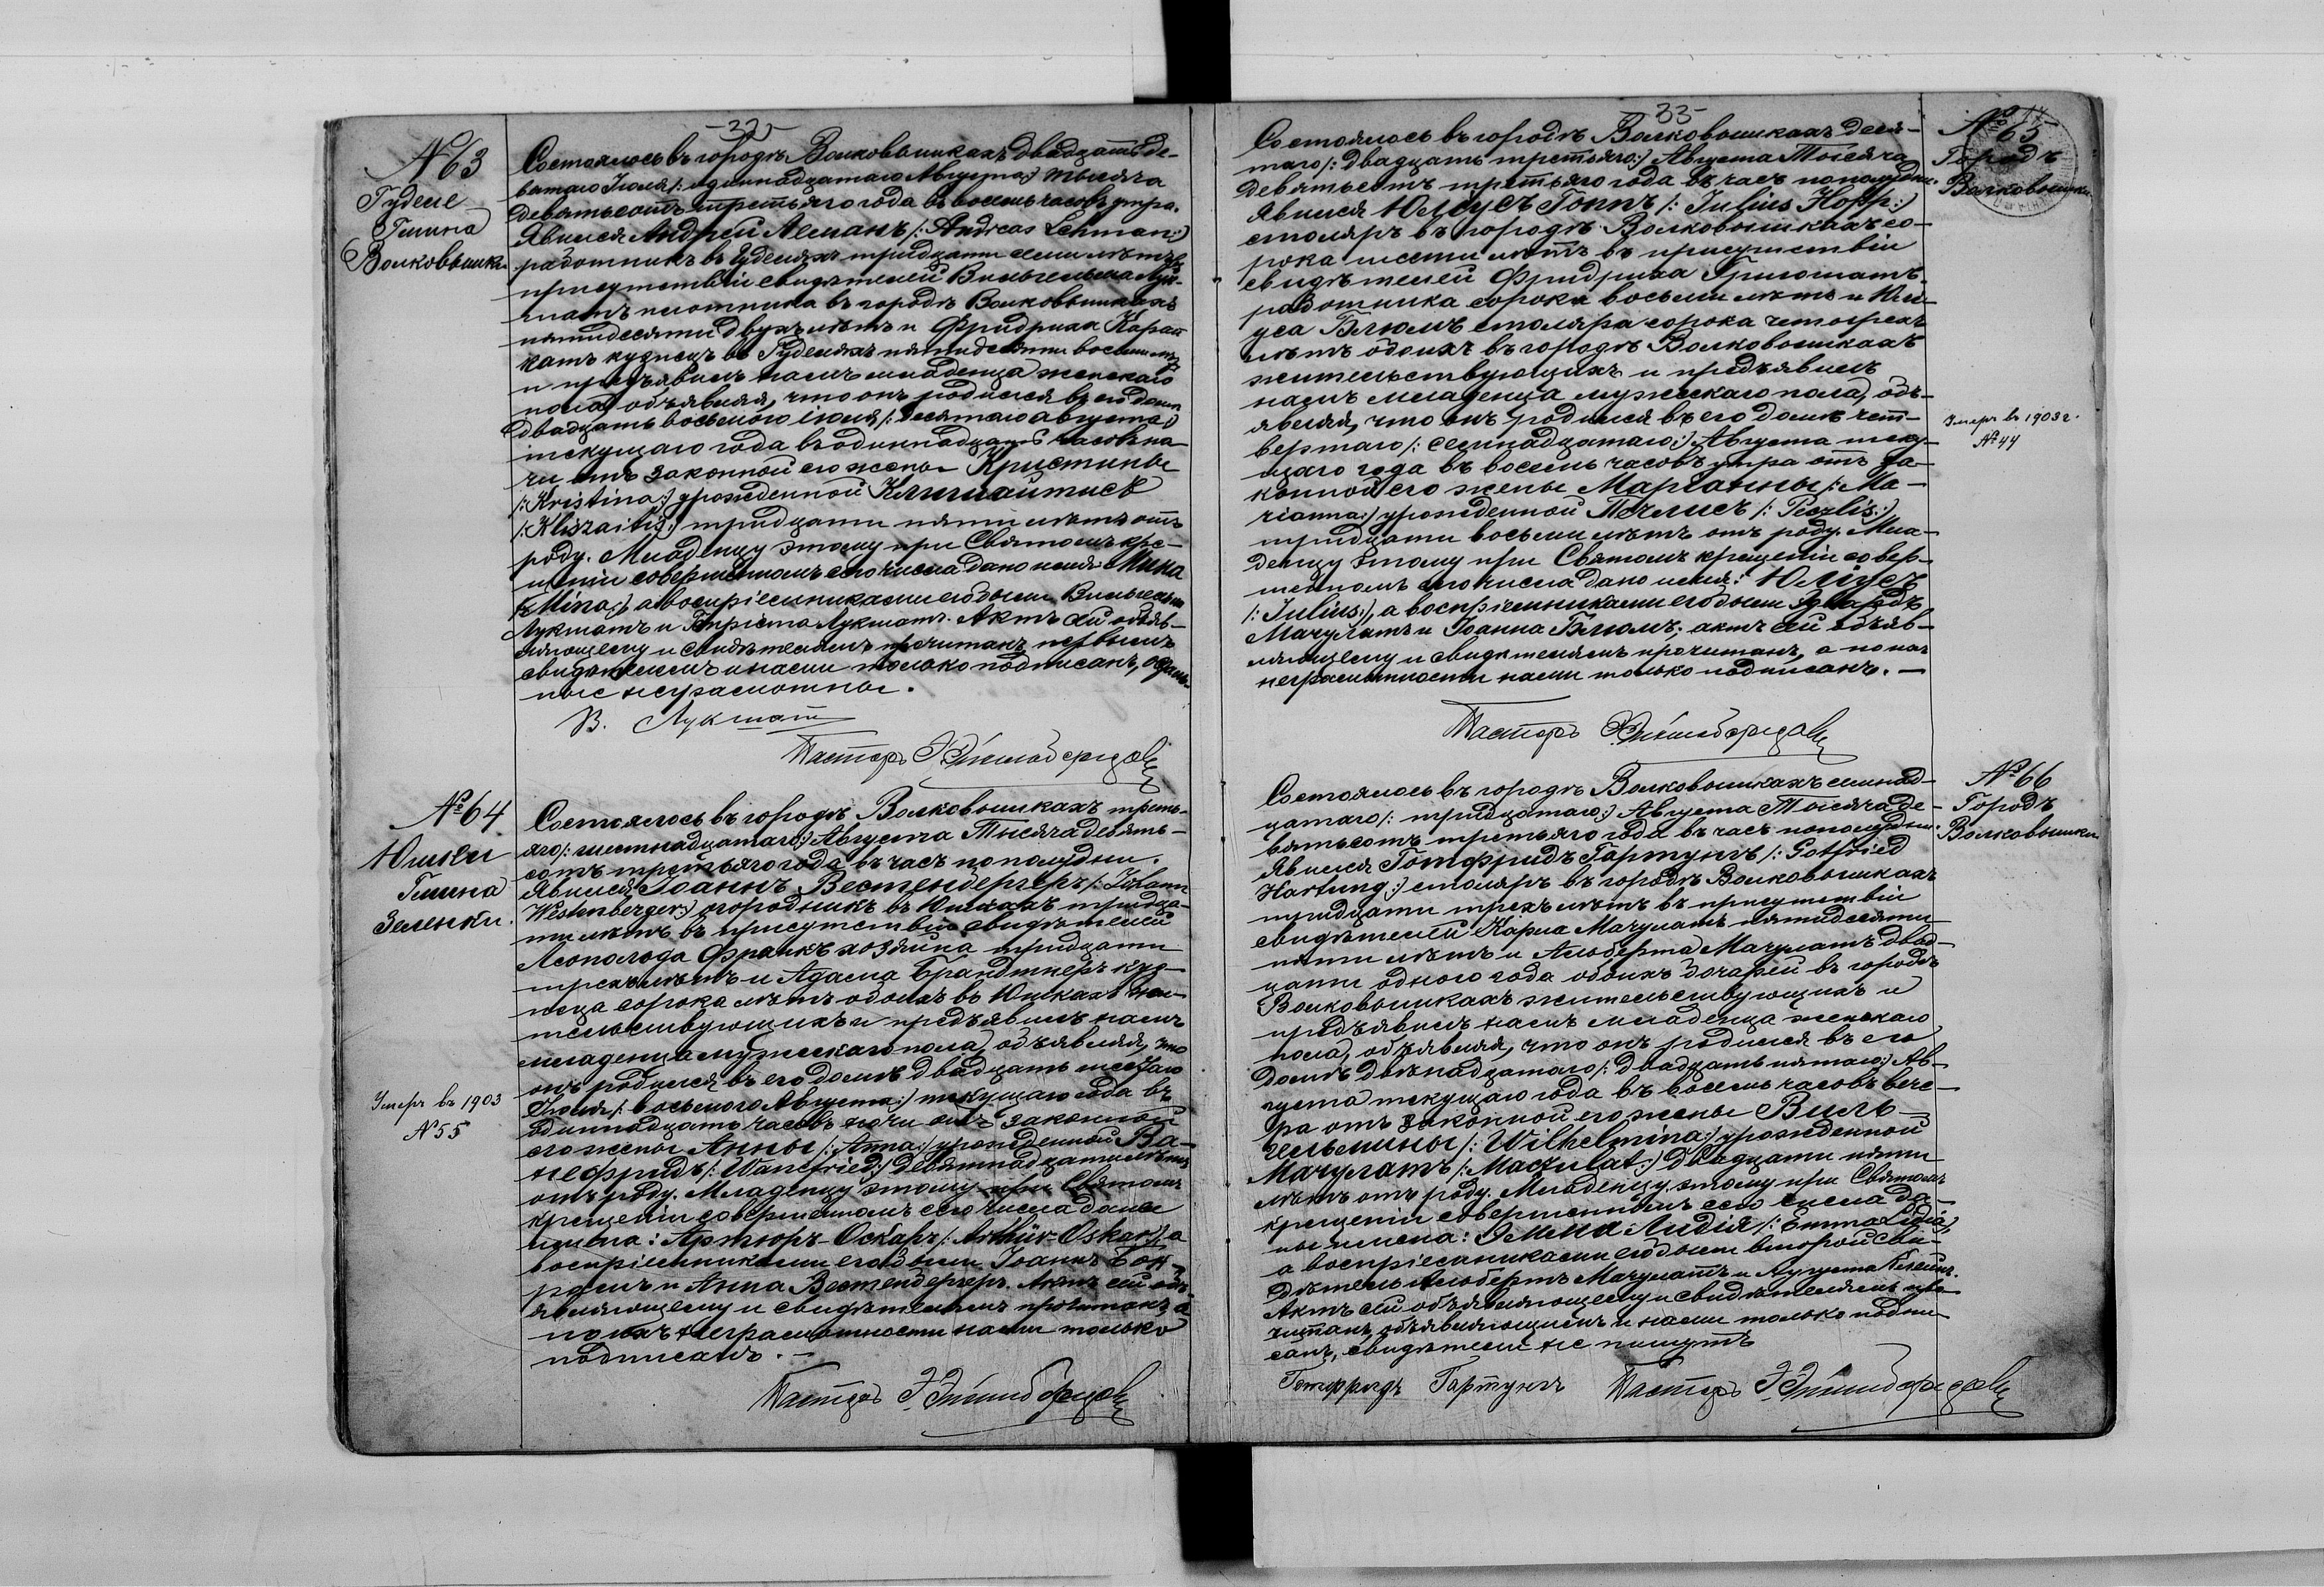 -32-
№ 63
Гудене
Гмина
Волковышки
Состоялось въ городѣ Волковышкахъ двадцать де-
вятаго Іюля /: одиннадцатаго Августа:/ тысяча
девятьсотъ третьяго года въ восемь часовъ утра.
Явился Андрей Леманъ /: Andreas Lehman:/
работникъ въ Гуделяхъ тридцати семи лѣтъ въ
присутствіи свидѣтелей Вильгельма Лук-
шатъ плотника въ городѣ Волковышкахъ
пятидесяти двухъ лѣтъ и Фридриха
кузнецъ въ Гуделяхъ пятидесяти восьми лѣтъ
и предъявилъ намъ младенца женскаго
пола, объявляя, что онъ родился въ его домѣ
двадцать восьмого іюля /: десятаго августа:/
текущаго года въ одиннадцать часовъ но-
чи отъ законной его жены Кристины
/: Kristina:/ урожденной Клишайтисъ
/: Kliszaitis:/ тридцати пяти лѣтъ отъ
роду. Младенцу этому при Святомъ кре-
щеніи совершенномъ сего числа дано имя: Мина
/: Mina:/, а воспріемниками его были Вильгельмъ
Лукшатъ и Лукшатъ. Актъ сей объяв-
ляющему и свидѣтелямъ прочитанъ, первымъ
свидѣтелемъ и нами только подписанъ,
неграмотны.
В. Лукшат
Пасторъ
№ 64
Юшки
Гмина
Зеленки.
Умеръ въ 1903
№ 55
Состоялось въ городѣ Волковышкахъ треть-
яго /: шестнадцатаго:/ Августа Тысяча девять-
сотъ третьяго года въ часъ пополудни.
Явился Іоаннъ Вестенбергеръ /: Iohann
Westenberger:/ огородникъ въ Юшкахъ тридца-
ти лѣтъ въ присутствіи свидѣтелей
Леопольда Франкъ хозяина тридцати
трехъ лѣтъ и Адама Брандтнеръ куз-
неца сорока лѣтъ обоихъ въ Юшкахъ жи-
тельствующихъ и предъявилъ намъ
младенца мужескаго пола, объявляя, что
онъ родился въ его домѣ двадцать шестаго
Іюля /: восьмого Августа:/ текущаго года въ
одиннадцать часовъ ночи отъ законной
его жены Анны /: Anna:/ урожденной Ва-
нефридъ /: Wanefried:/ девятнадцати лѣтъ
отъ роду. Младенцу этому при Святомъ
крещеніи совершенномъ сего числа даны
имена: Артюръ-Оскаръ /: Arthür-Oskar:/, а
воспріемниками его были Іоаннъ
и Анна Вестенбергеръ. Актъ сей объ-
являющему и свидѣтелямъ прочитанъ, а
по ихъ неграмотности нами только
подписанъ. -
Пасторъ
33-
№ 65
Городъ
Волковышки.
Умеръ въ 1903 г.
№ 44
Состоялось въ городѣ Волковышкахъ деся-
таго /: двадцать третьяго:/ Августа Тысяча
девятьсотъ третьяго года въ часъ пополудни.
Явился Юліусъ Гоппъ /: Iulius Hopp:/
столяръ въ городѣ Волковышкахъ со-
рока шести лѣтъ въ присутствіи
свидѣтелей Фридриха
работника сорока восьми лѣтъ и Юлі-
уса Блюмъ столяра сорока четырехъ
лѣтъ обоихъ въ городѣ Волковышкахъ
жительствующихъ и предъявилъ
намъ младенца мужескаго пола, объ-
являя, что онъ родился въ его домѣ чет-
вертаго /: семнадцатаго:/ Августа теку-
щаго года въ восемь часовъ утра отъ за-
конной его жены Маріанны /: Ma-
rianna:/ урожденной Печлисъ /: Peczlis:/
тридцати восьми лѣтъ отъ роду. Мла-
денцу этому при Святомъ крещеніи совер-
шенномъ сего числа дано имя: Юліусъ
/: Iulius:/, а воспріемниками его были Эдвардъ
Мачулатъ и Іоанна Блюмъ; актъ сей объяв-
ляющему и свидѣтелямъ прочитанъ, а по ихъ
неграмотности нами только подписанъ. -
Пасторъ
№ 66
Городъ
Волковышки
Состоялось въ городѣ Волковышкахъ семнад-
цатаго /: тридцатаго:/ Августа Тысяча де-
вятьсотъ третьяго года въ часъ пополудни.
Явился Готфридъ Гартунгъ /: Gotfried
Hartung:/ столяръ въ городѣ Волковышкахъ
тридцати трехъ лѣтъ въ присутствіи
свидѣтелей Карла Мачулатъ пятидесяти
пяти лѣтъ и Альберта Мачулатъ двад-
цати одного года обоихъ бочарей въ городѣ
Волковышкахъ жительствующихъ и
предъявилъ намъ младенца женскаго
пола, объявляя, что онъ родился въ его
домѣ двѣнадцатаго /: двадцать пятаго:/ Ав-
густа текущаго года въ восемь часовъ вече-
ра отъ законной его жены Виль-
гельмины /: Wilhelmina:/ урожденной
Мачулатъ /: Maczulat:/ двадцати пяти
лѣтъ отъ роду. Младенцу этому при Святомъ
крещеніи совершенномъ сего числа да-
ны имена: Эмма Лидія /: Emma Lidia:/,
а воспріемниками его были второй сви-
дѣтель Альбертъ Мачулатъ и Августа
Актъ сей объявляющему и свидѣтелямъ про-
читанъ, объявляющимъ и нами только подпи-
санъ, свидѣтели не пишутъ
Готфридъ Гартунгъ Пасторъ